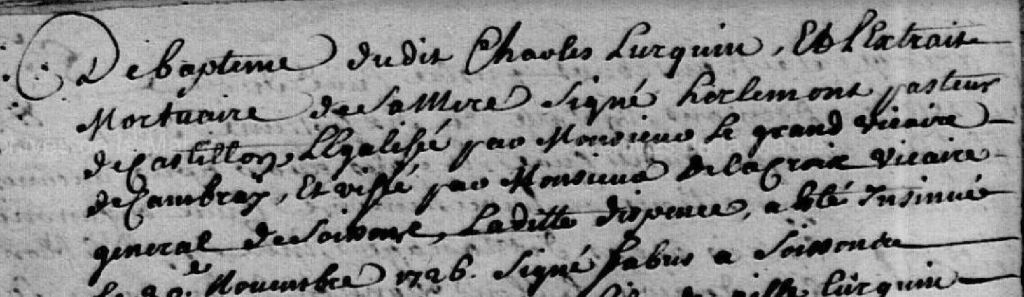 De bapteme du dit Charles Lurquin, Et L'Extrait
Mortuaire de Sa Mere Signé herlemont pasteur
de Castillon, LEgalisé par Monsieur le grand vicaire
de Cambray, Et vissé par Monsieur De la Croix Vicaire
general de Soissons, Laditte dispence, a Eté Insinué
le Novembre 1726. Signé fabus a Soissons
Lurquin